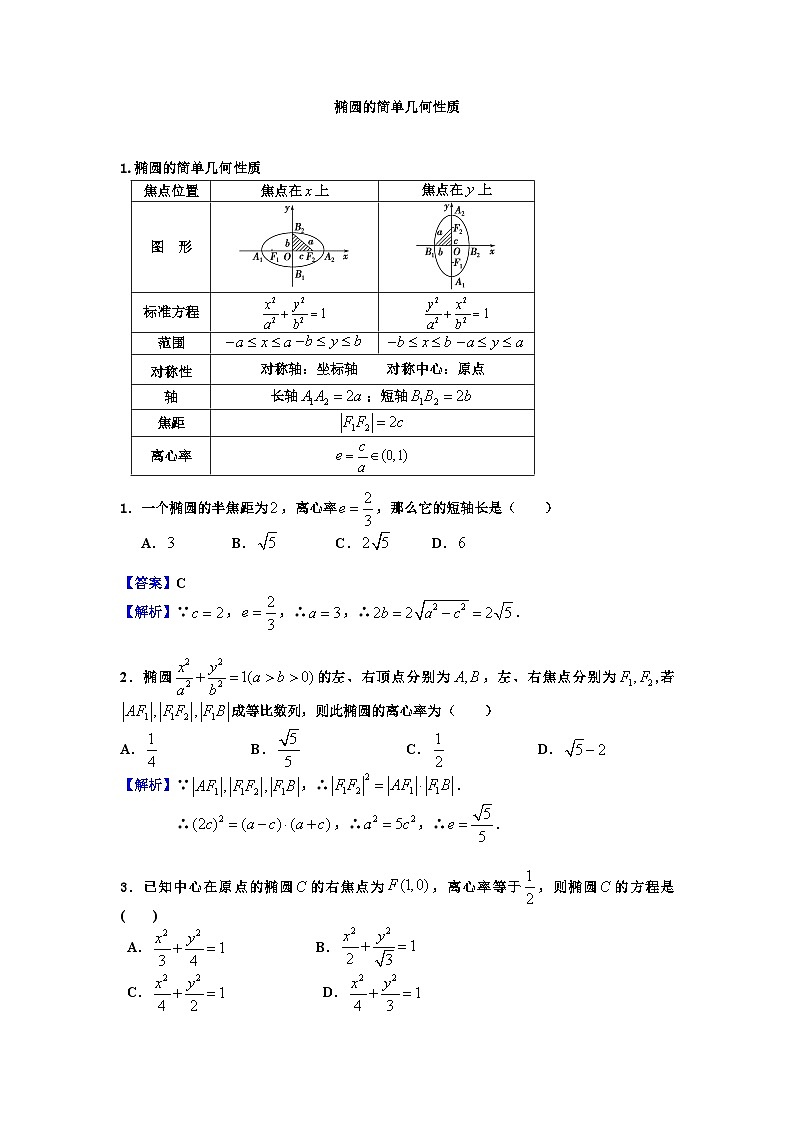 椭圆的简单几何性质
1.椭圆的简单几何性质
焦点位置 焦点在 x 上 焦点在 y 上
图 形
y B₂ b a A₁ F₁ O c F₂ A₂ x B₁
y A₂ F₂ a c B₁ b O B₂ x F₁ A₁
标准方程 x²/a² + y²/b² = 1 y²/a² + x²/b² = 1
范围 −a ≤ x ≤ a −b ≤ y ≤ b −b ≤ x ≤ b −a ≤ y ≤ a
对称性 对称轴:坐标轴 对称中心:原点
轴 长轴 A₁A₂ = 2a ;短轴 B₁B₂ = 2b
焦距 |F₁F₂| = 2c
离心率 e = c/a ∈ (0,1)
1. 一个椭圆的半焦距为 2 ,离心率 e = 2/3 ,那么它的短轴长是( )
A. 3 B. √5 C. 2√5 D. 6
【答案】C
【解析】∵ c = 2 , e = 2/3 ,∴ a = 3 ,∴ 2b = 2√(a² − c²) = 2√5 .
2. 椭圆 x²/a² + y²/b² = 1(a > b > 0) 的左、右顶点分别为 A, B ,左、右焦点分别为 F₁, F₂ ,若
|AF₁|, |F₁F₂|, |F₁B| 成等比数列,则此椭圆的离心率为( )
A. 1/4 B. √5/5 C. 1/2 D. √5 − 2
【解析】∵ |AF₁|, |F₁F₂|, |F₁B| ,∴ |F₁F₂|² = |AF₁| · |F₁B| .
∴ (2c)² = (a − c) · (a + c) ,∴ a² = 5c² ,∴ e = √5/5 .
3. 已知中心在原点的椭圆 C 的右焦点为 F(1,0) ,离心率等于 1/2 ,则椭圆 C 的方程是
( )
A. x²/3 + y²/4 = 1 B. x²/2 + y²/√3 = 1
C. x²/4 + y²/2 = 1 D. x²/4 + y²/3 = 1